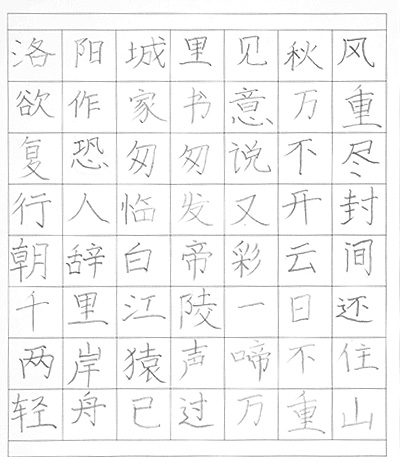 洛阳城里见秋风
欲作家书意万重
复恐匆匆说不尽
行人临发又开封
朝辞白帝彩云间
千里江陵一日还
两岸猿声啼不住
轻舟已过万重山